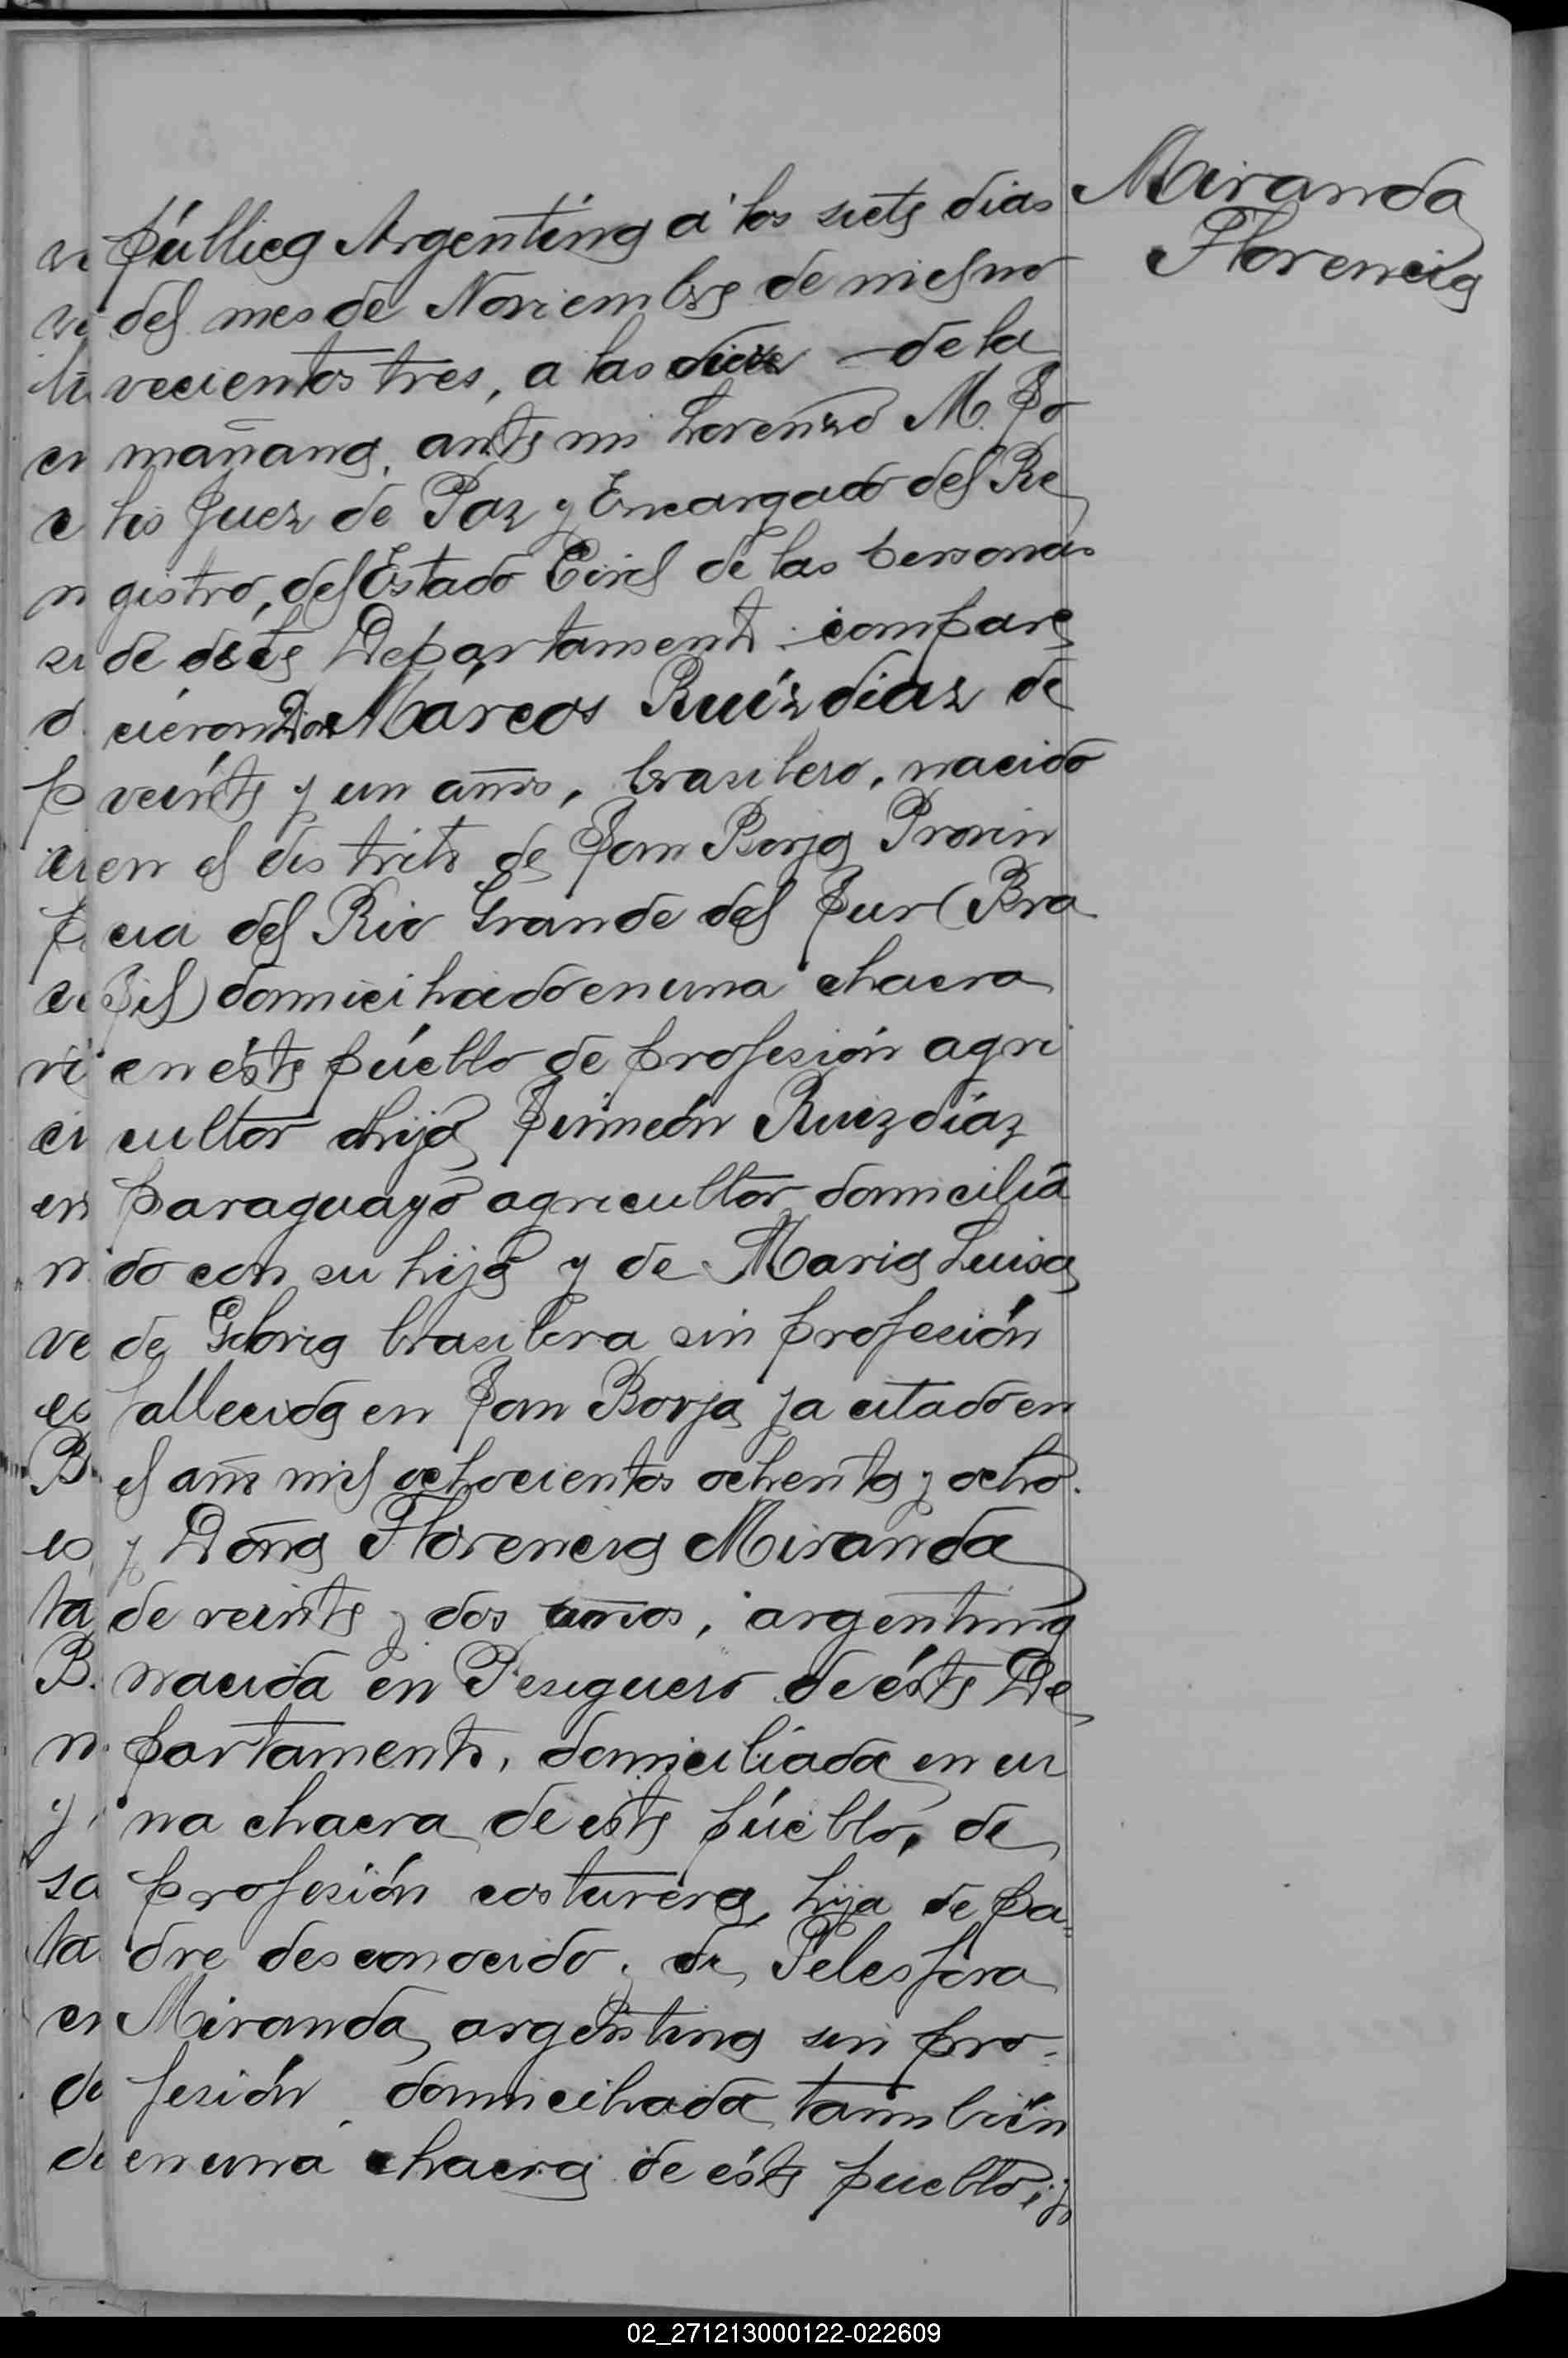 Miranda
Florencia
pública Argentina á los siete dias
del mes de Noviembre de mil no
vecientos tres, a las diez de la
mañana, ante mi Lorenzo M. So
Juez de Paz y Encargado del Re
gistro, del Estado Civil de las personas
de éste Departamento compare
cieron Don Márcos Ruíz diaz de
veinte y un años, brasilero, nacido
en el distrito de San Borja Provin
cia del Rio Grande del Sur (Bra
sil) domiciliado en una chacra
en éste púeblo de profesión agri
cultor hijo Simeón Ruiz díaz
paraguayo agricultor domicilia
do con su hijo y de Maria Luisa
de brasilera sin profesión
fallecida en San Borja ya citado en
el año mil ochocientos ochenta y ocho.
y Doña Florencia Miranda
de veinte y dos años, argentina
nacida en Pesiguero de éste De
partamento, domiciliada en u
na chacra de este púeblo, de
profesión costurera, hija de pa=
dre desconocido y de Telesfora
Miranda argentina sin pro=
fesión, domiciliada también
en una chacra de éste pueblo; y